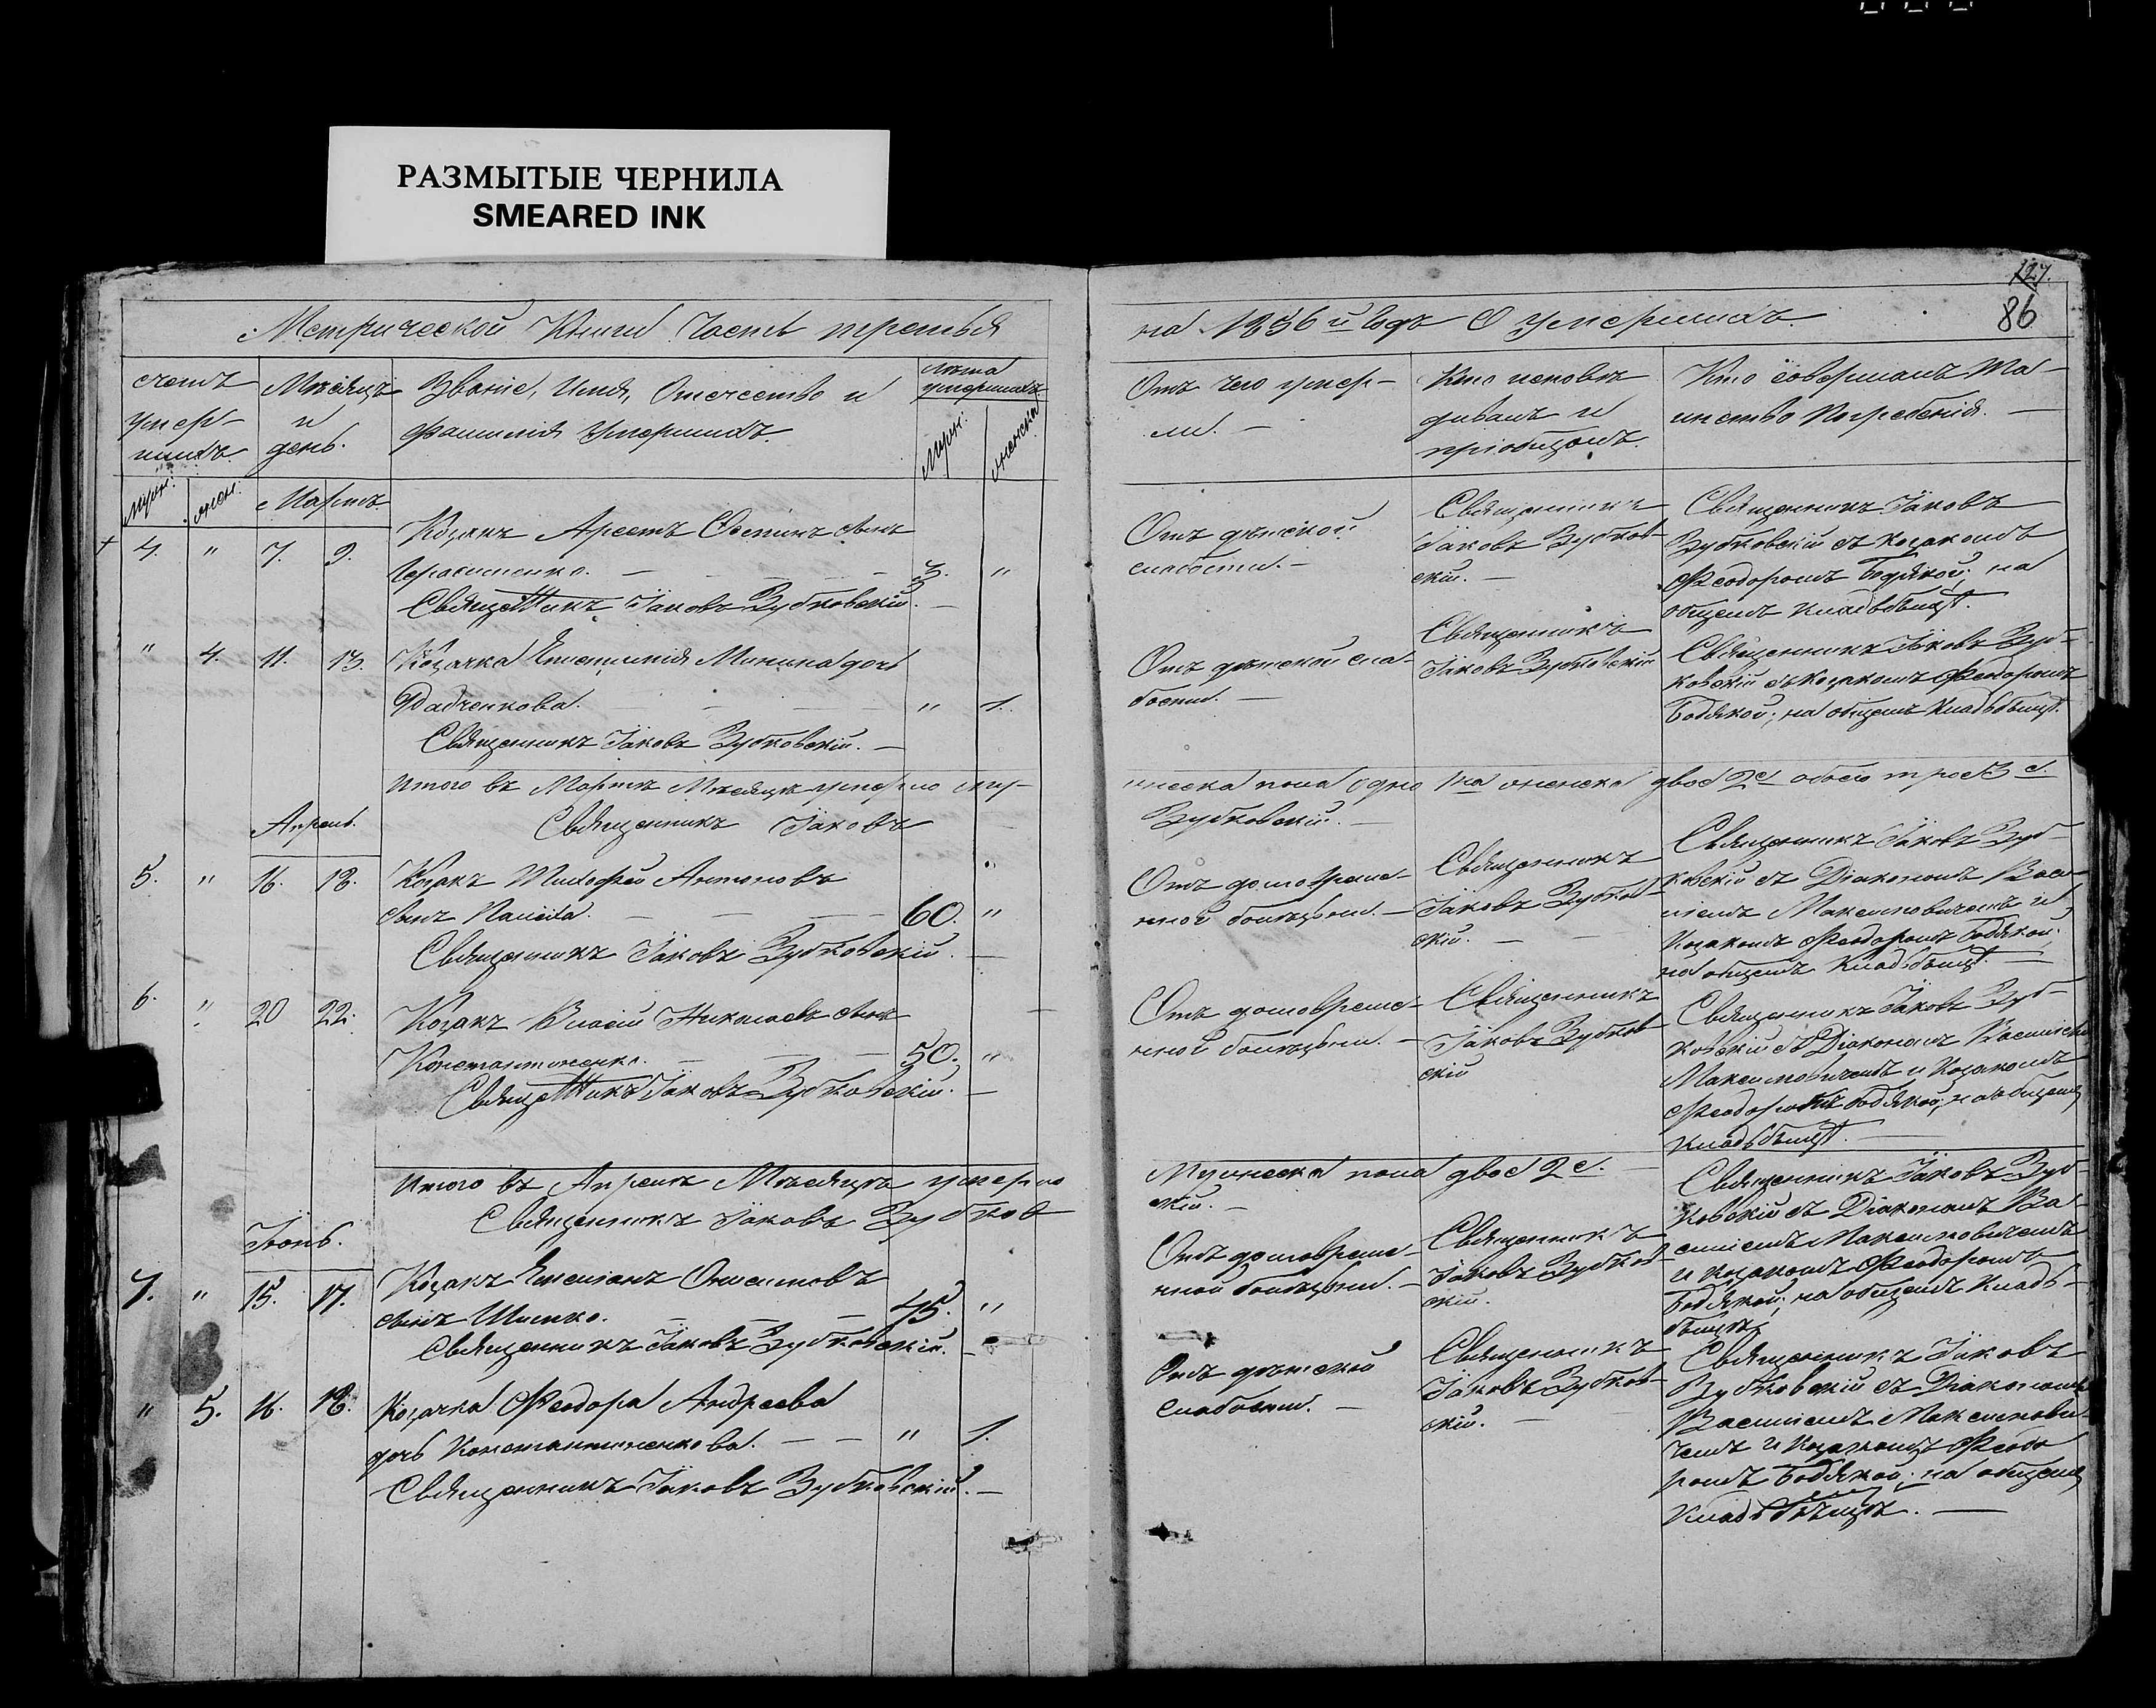 РАЗМЫТЫЕ ЧЕРНИЛА
SMEARED INK
127.
86
Метрической Книги Часть третья
на 1856й Годъ О Умершихъ.
счетъ умер-шихъ.
Мѣсяцъ и день.
Званіе, Имя, Отечество и
фамилія Умершихъ.
Лѣта умершихъ.
Отъ чего умер-
ли. —
Кто исповѣ
дывалъ и
пріобщалъ.
Кто совершалъ Та-
инство Погребенія. —
муж.
жен.
Мартъ
4. " 7. 9.
Козакъ Орестъ сынъ
Герасименко. — 3. "
Священникъ Іаковъ Зубковскій. —
Отъ дѣтской
слабости. —
Священникъ
Іаковъ Зубков-
скій. —
Священникъ Іаковъ
Зубковскій съ козакомъ
Феодоромъ Бодякой; на
общемъ кладбѣищѣ.
" 4. 11. 13.
Козачка Минина дочь
" 1.
Священникъ Іаковъ Зубковскій. —
Отъ дѣтской сла-
бости. —
Священникъ
Іаковъ Зубковскій
Священникъ Іаковъ Зуб-
ковскій съ козакомъ Феодоромъ
Бодякой; на общемъ кладбѣищѣ.
Итого въ Мартѣ Мѣсяцѣ умерло му-
жеска пола одно 1на женска двое 2е обоего трое 3 е.
Священникъ Іаковъ
Зубковскій. —
Апрель.
5. " 16. 18.
Козакъ Тимофей Антоновъ
сынъ 60. "
Священникъ Іаковъ Зубковскій. —
Отъ долговреме-
нной болѣзни. —
Священникъ
Іаковъ Зубков-
скій. —
Священникъ Іаковъ Зуб-
ковскій съ Діакономъ Васи-
ліемъ Максимовичемъ и
Козакомъ Феодоромъ Бодякой;
на общемъ кладбѣищѣ. —
6. " 20 22.
Козакъ Власій Николаевъ сынъ
Константиненко. — 50. "
Священникъ Іаковъ Зубковскій. —
Отъ долговреме-
нной болѣзни. —
Священникъ
Іаковъ Зубков-
скій
Священникъ Іаковъ Зуб-
ковскій съ Діакономъ Василіемъ
Максимовичемъ и Козакомъ
Феодоромъ Бодякой; на общемъ
кладбѣищѣ. —
Итого въ Апрелѣ Мѣсяцѣ умерло
Мужеска пола двое 2 е. —
Священникъ Іаковъ Зубков-
скій. —
Іюнь.
7. " 15. 17.
Козакъ Емеліанъ Онисимовъ
сынъ Шишко. — 45. "
Священникъ Іаковъ Зубковскій. —
Отъ долговреме-
нной болѣзни. —
Священникъ
Іаковъ Зубков-
скій.
Священникъ Іаковъ Зуб-
ковскій съ Діакономъ Ва-
силіемъ Максимовичемъ
и козакомъ Феодоромъ
Бодякой; на общемъ кладб-
ѣищѣ.
" 5. 16. 18.
Козачка Феодора Андреева
дочь Константиненкова. — — " 1.
Священникъ Іаковъ Зубковскій. —
Отъ дѣтской
слабости. —
Священникъ
Іаковъ Зубков-
скій. —
Священникъ Іаковъ
Зубковскій съ Діакономъ
Василіемъ Максимови-
чемъ и Козакомъ Феодо
ромъ Бодякой; на общемъ
кладбѣищѣ. —